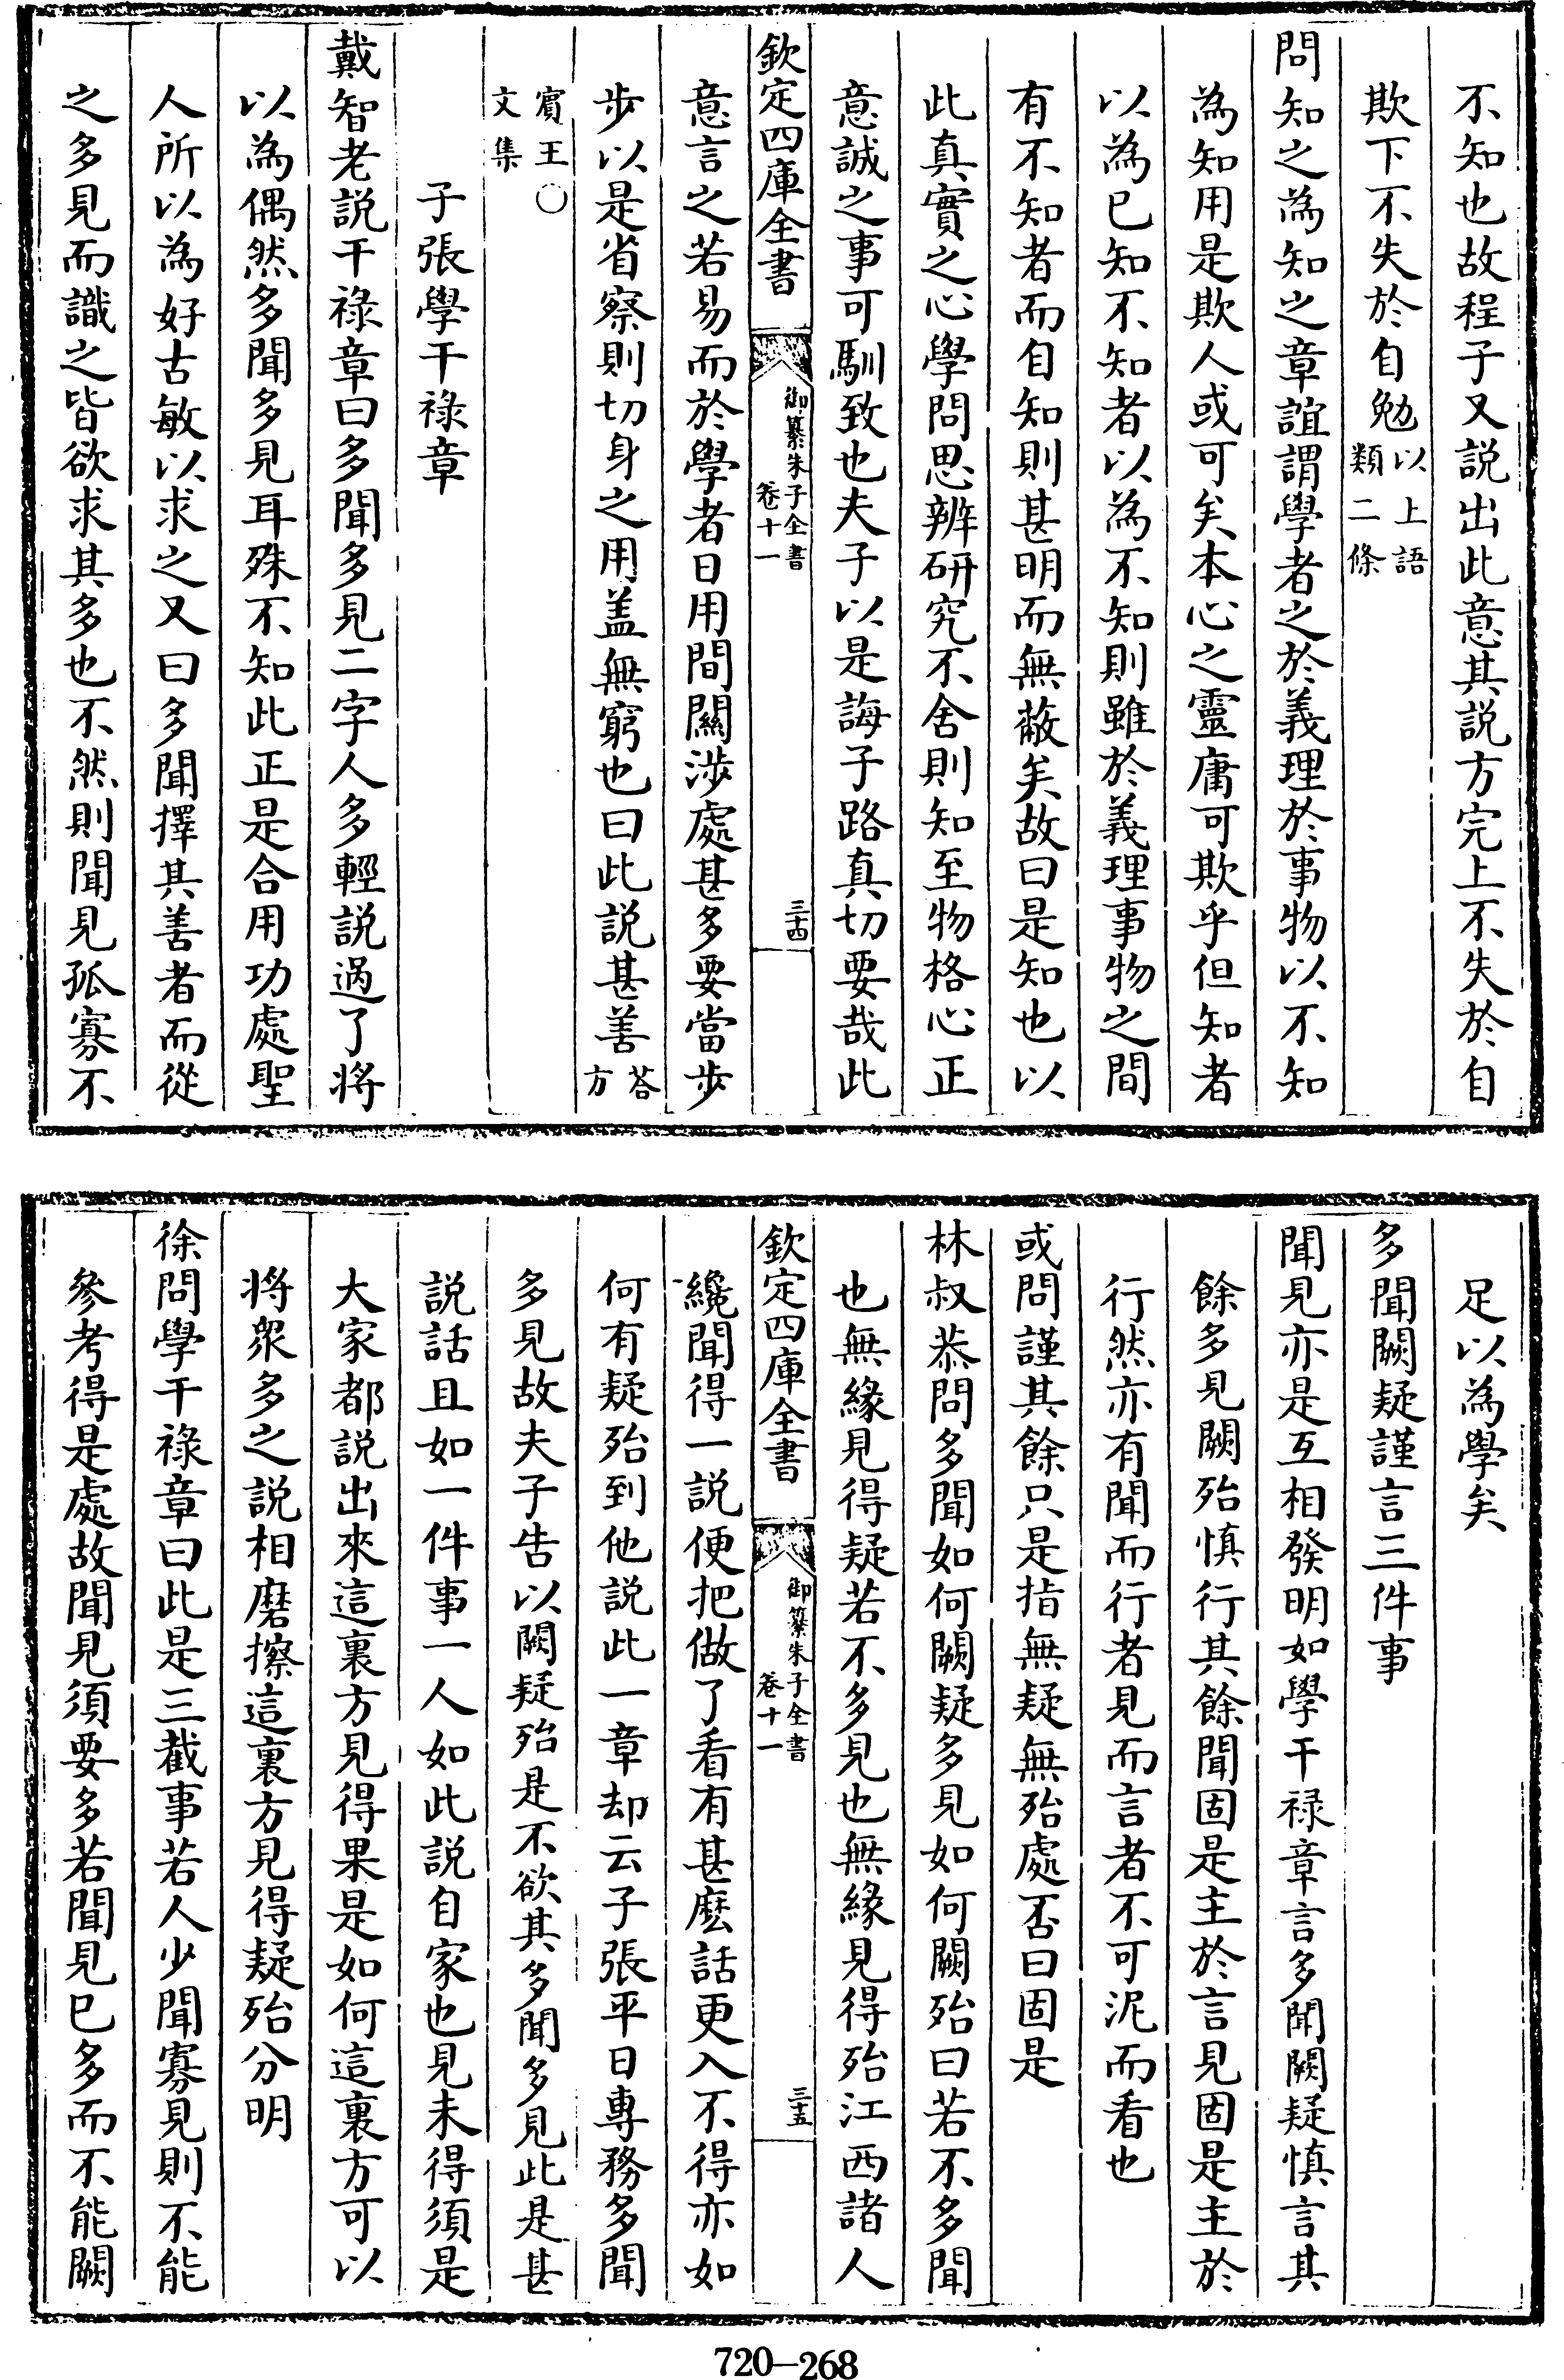 不知也故程子又説出此意其説方完上不失於自
欺下不失於自勉以上語類二條
問知之為知之章誼謂學者之於義理於事物以不知
為知用是欺人或可矣本心之靈庸可欺乎但知者
以為已知不知者以為不知則雖於義理事物之間
有不知者而自知則甚明而無蔽矣故曰是知也以
此真實之心學問思辨研究不舍則知至物格心正
意誠之事可馴致也夫子以是誨子路真切要哉此
欽定四庫全書
御纂朱子全書
卷十一
三十四
意言之若易而於學者日用間關涉處甚多要當步
步以是省察則切身之用盖無窮也曰此説甚善答方
賓王○
文集
子張學干祿章
戴智老説干祿章曰多聞多見二字人多輕説過了將
以為偶然多聞多見耳殊不知此正是合用功處聖
人所以為好古敏以求之又曰多聞擇其善者而從
之多見而識之皆欲求其多也不然則聞見孤寡不
足以為學矣
多聞闕疑謹言三件事
聞見亦是互相發明如學干禄章言多聞闕疑慎言其
餘多見闕殆慎行其餘聞固是主於言見固是主於
行然亦有聞而行者見而言者不可泥而看也
或問謹其餘只是指無疑無殆處否曰固是
林叔恭問多聞如何闕疑多見如何闕殆曰若不多聞
也無緣見得疑若不多見也無緣見得殆江西諸人
欽定四庫全書
御纂朱子全書
卷十一
三十五
纔聞得一説便把做了看有甚麽話更入不得亦如
何有疑殆到他説此一章却云子張平日專務多聞
多見故夫子告以闕疑殆是不欲其多聞多見此是甚
説話且如一件事一人如此説自家也見未得須是
大家都説出來這裏方見得果是如何這裏方可以
將衆多之説相磨擦這裏方見得疑殆分明
徐問學干祿章曰此是三截事若人少聞寡見則不能
參考得是處故聞見須要多若聞見已多而不能闕
720—268